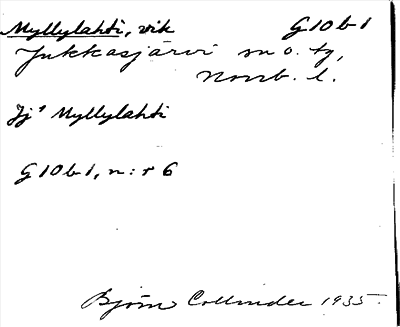 Myllylahti, vik G10b1
Jukkasjärvi sn o. tg,
Norrb. l.
Jj's Myllylahti
G10b1, n:r 6
Björn Collinder 1935.